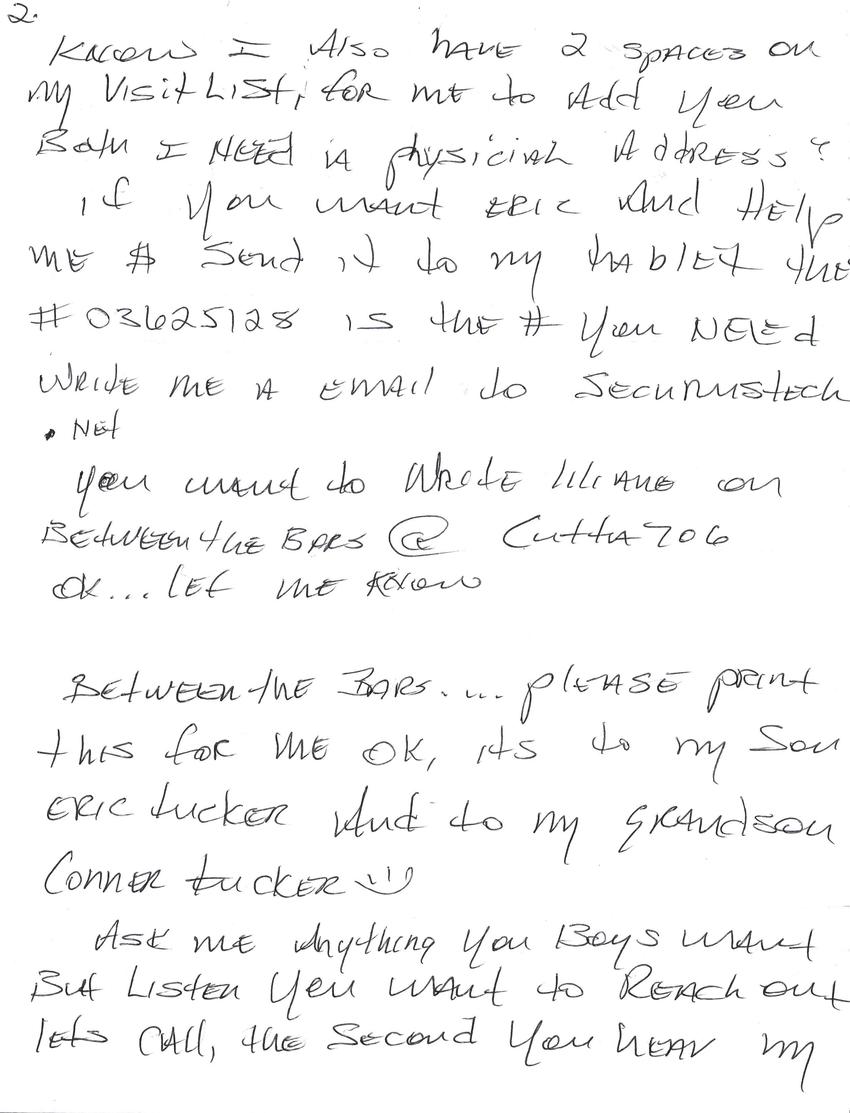 2.
Know I Also have 2 spaces on
my Visit List, for me to Add you
Both I NEEd A physicial Address?
if you want ERIC And HElp
me $ Send it to my tablet the
# 03625128 is the # you NEEd
Write me A email to Securustech
. Net
you want to Write on
Between the Bars @ Cutta706
OK... let me Know
Between the Bars.... please print
this for me OK, its to my Son
ERIC tucker And to my grandson
Conner tucker
Ask me Anything you Boys want
But Listen you want to Reach out
lets CAll, the Second you hear my